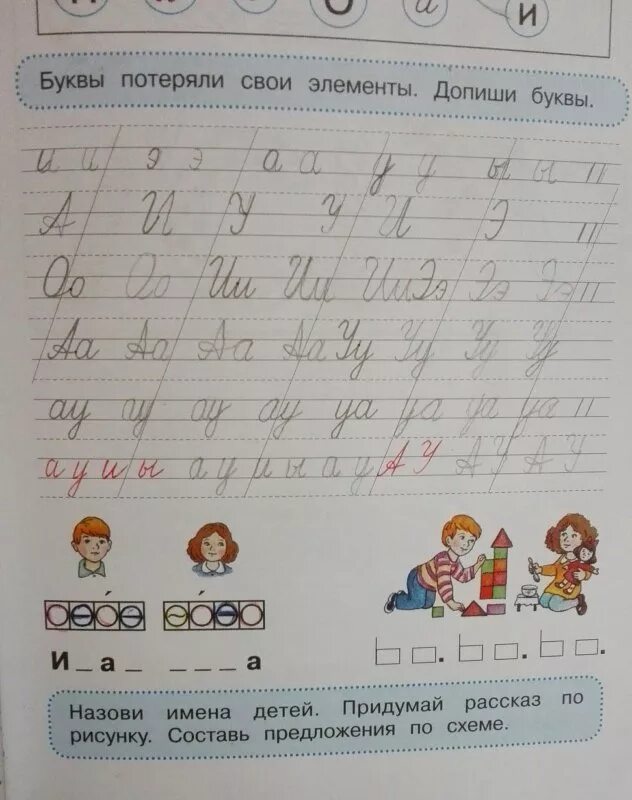 О а и
Буквы потеряли свои элементы. Допиши буквы.
и и э э а а у у ы ы
А И У У И Э
Оо Оо Ии Ии Ии Ээ Ээ Ээ
Аа Аа Аа Аа Уу Уу Уу Уу
ау ау ау ау уа уа уа уа
а у и ы а у и ы а у А У А У А У
И _ а _ _ _ _ а
Назови имена детей. Придумай рассказ по
рисунку. Составь предложения по схеме.